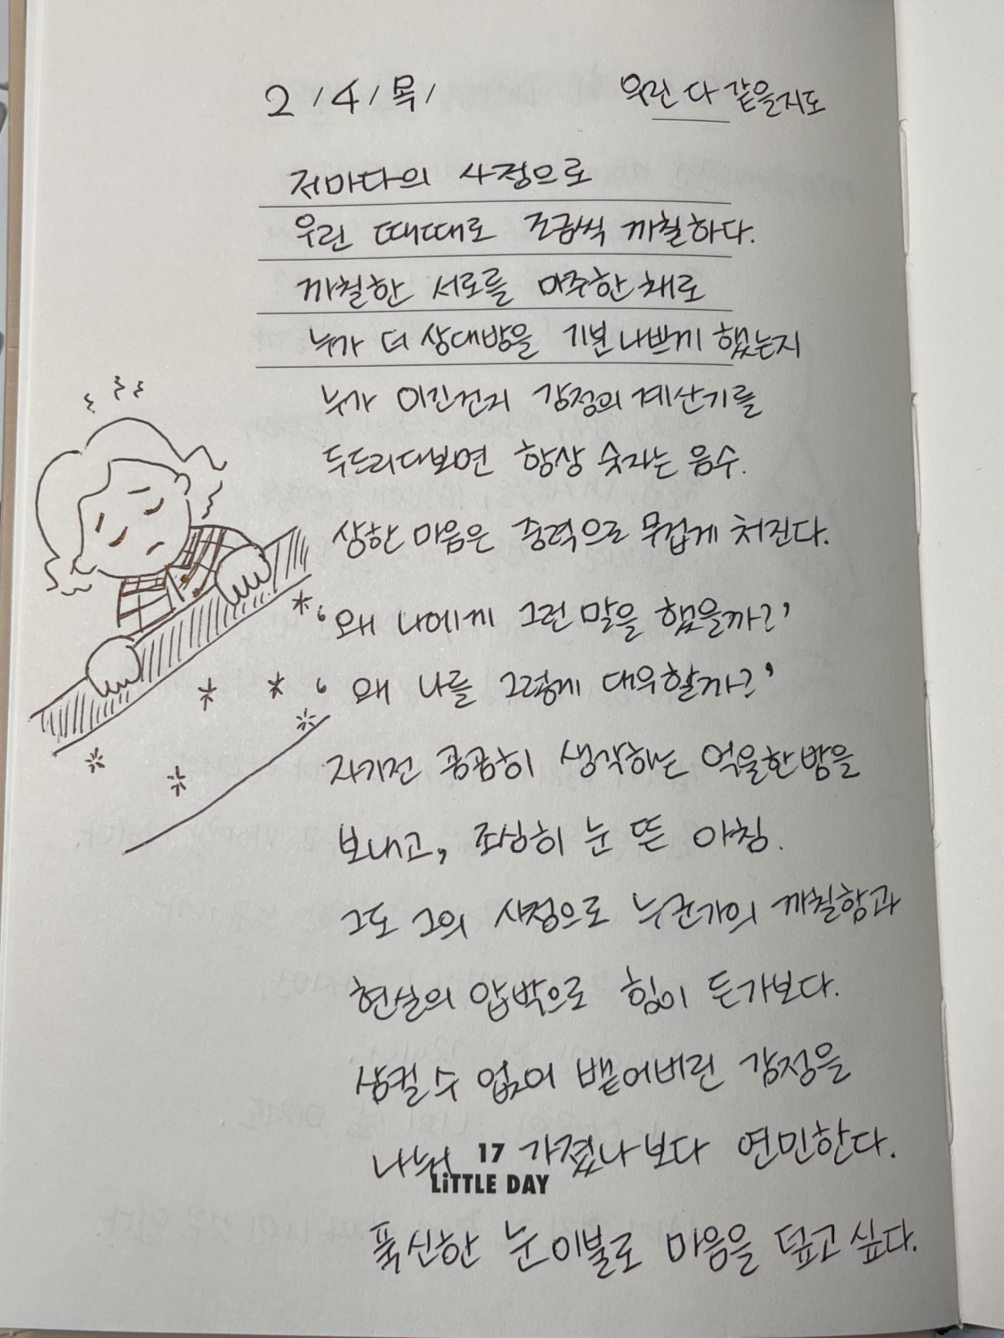 2/4/목/ 우린 다 같을지도
저마다의 사정으로
우린 때때로 조금씩 까칠하다.
까칠한 서로를 마주한채로
누가 더 상대방을 기분나쁘게 했는지
누가 이긴건지 감정의 계산기를
두드리다보면 항상 숫자는 음수.
상한 마음은 중력으로 무겁게 처진다.
'왜 나에게 그런 말을 했을까?'
'왜 나를 그렇게 대우할까?'
자기전 곰곰히 생각하는 억울한밤을
보내고, 조심히 눈 뜬 아침.
그도 그의 사정으로 누군가의 까칠함과
현실의 압박으로 힘이 든가보다.
삼킬 수 없어 뱉어버린 감정을
나눠 가졌나보다 연민한다.
17
LiTTLE DAY
푹신한 눈이불로 마음을 덮고싶다.